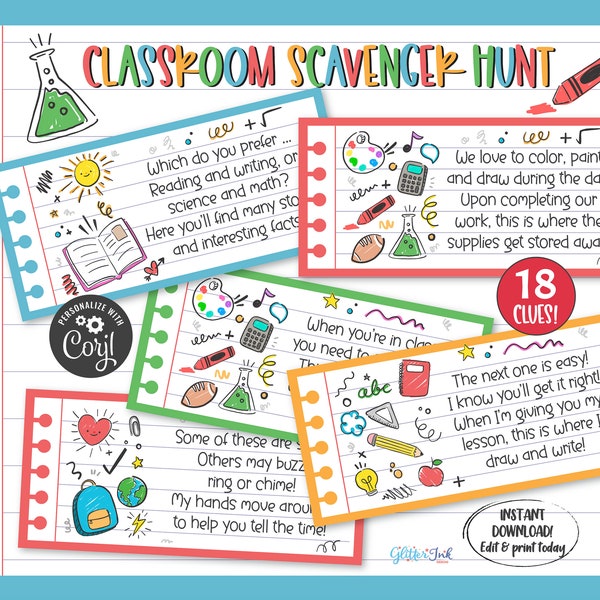 CLASSROOM SCAVENGER HUNT
Which do you prefer ...
Reading and writing, or
science and math?
Here you'll find many
and interesting facts
We love to color, paint
and draw during the
Upon completing our
work, this is where the
supplies get stored
18
CLUES!
PERSONALIZE WITH
Corjl
When you're in
you need to
The next one is easy!
I know you'll get it right!
When I'm giving you my
lesson, this is where I
draw and write!
abc
Some of these are
Others may buzz
ring or chime!
My hands move around
to help you tell the time!
INSTANT
DOWNLOAD!
Edit & print today
Glitter Ink